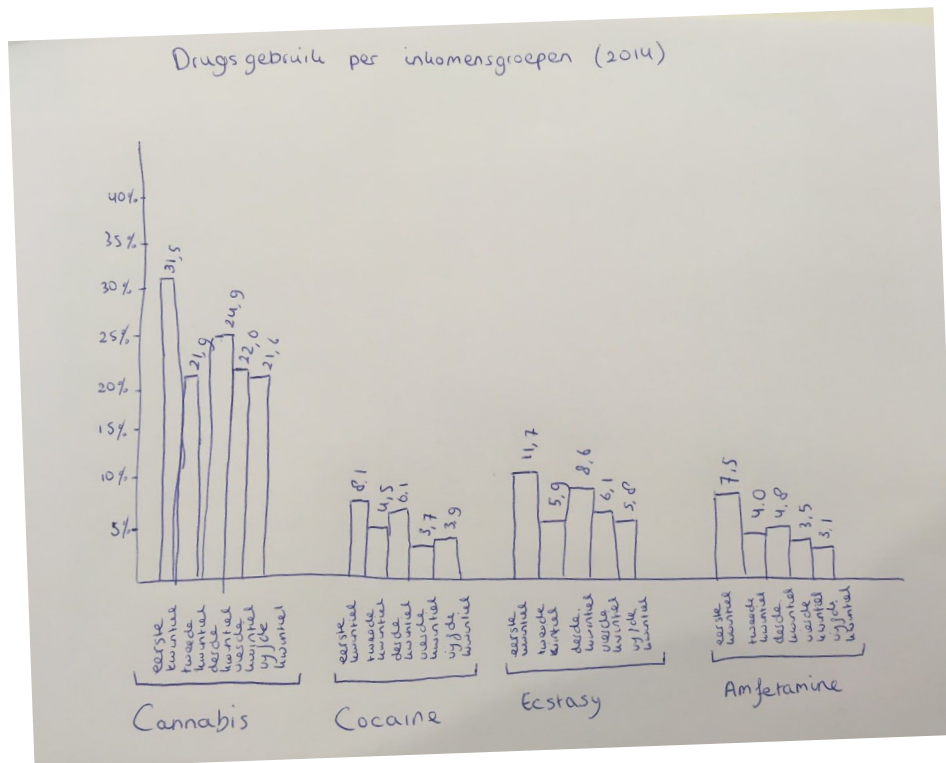 Drugsgebruik per inkomensgroepen (2014)
40%
35%
30%
25%
20%
15%
10%
5%
31,5
21,9
24,9
22,0
21,6
8,1
4,5
6,1
3,7
3,9
11,7
5,9
8,6
6,1
5,8
7,5
4,0
4,8
3,5
3,1
eerste
kwintiel
tweede
kwintiel
derde
kwintiel
vierde
kwintiel
vijfde
kwintiel
Cannabis
eerste
kwintiel
tweede
kwintiel
derde
kwintiel
vierde
kwintiel
vijfde
kwintiel
Cocaine
eerste
kwintiel
tweede
kintiel
derde
kwintiel
vierde
kwintiel
vijfde
kwintiel
Ecstasy
eerste
kwintiel
tweede
kwintiel
derde
kwintiel
vierde
kwintiel
vijfde
kwintiel
Amfetamine